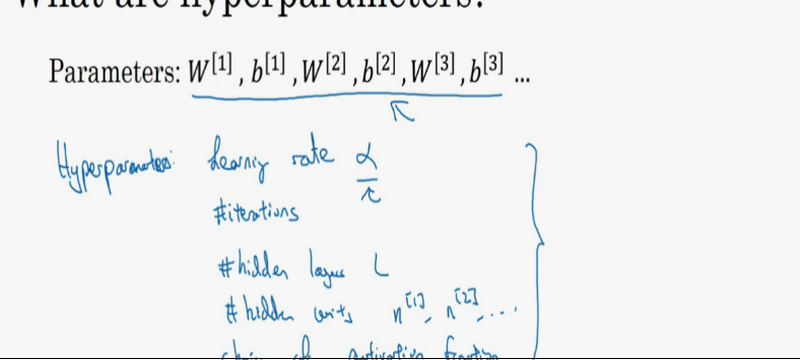 What are hyperparameters?
Parameters: W[1] , b[1] , W[2] , b[2] , W[3] , b[3] ...
Hyperparameters: Learning rate α
#iterations
#hidden layers L
# hidden units n[1], n[2], ....
choice of activation function